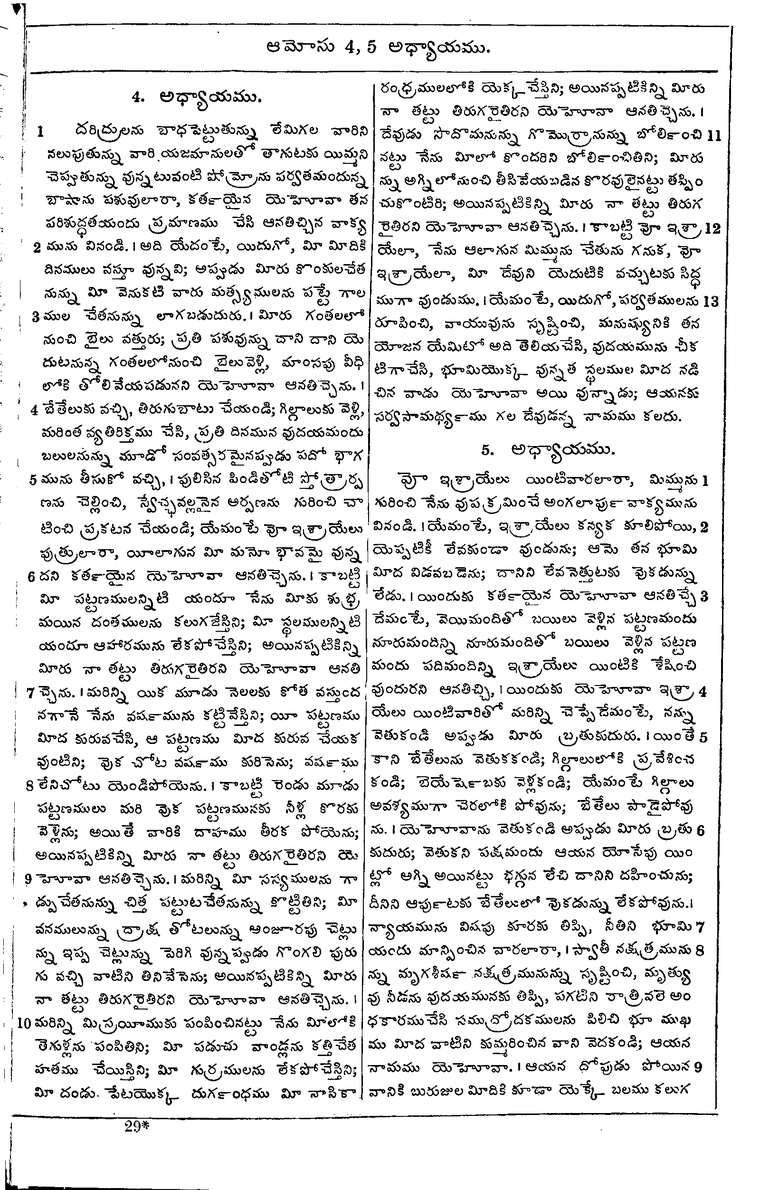 ఆమోసు 4, 5 అధ్యాయము.
4. అధ్యాయము.
1 దరిద్రులను బాధపెట్టుతున్ను లేమిగల వారిని
నలుపుతున్ను వారి యజమానులతో తాగుటకు యిమ్మని
చెప్పుతున్ను వున్నటువంటి షోమ్రోను పర్వతమందున్న
బాషాను పశువులారా, కర్తయైన యెహోవా తన
పరిశుద్ధతయందు ప్రమాణము చేసి ఆనతిచ్చిన వాక్య
2 మును వినండి. । అది యేదంటే, యిదుగో, మీ మీదికి
దినములు వస్తూ వున్నవి; అప్పుడు మీరు కొంకులచేత
నున్ను మీ వెనుకటి వారు మత్స్యములను పట్టే గాల
3 ముల చేతనున్ను లాగబడుదురు. । మీరు గంతలలో
నుంచి బైలు వత్తురు; ప్రతి పశువున్ను దాని దాని యె
దుటనున్న గంతలలోనుంచి బైలువెళ్లి, మాంసపు వీధి
లోకి తోలివేయపడునని యెహోవా ఆనతిచ్చెను. ।
4 బేతేలుకు వచ్చి, తిరుగుబాటు చేయండి; గిల్గాలుకు వెళ్లి,
మరింత వ్యతిరిక్తము చేసి, ప్రతి దినమున వుదయమందు
బలులనున్ను మూడో సంవత్సరమైనప్పుడు పదో భాగ
5 మును తీసుకో వచ్చి, । పులిసిన పిండితోటి స్తోత్రార్ప
ణను చెల్లించి, స్వేచ్ఛవల్లనైన అర్పణను గురించి చా
టించి ప్రకటన చేయండి; యేమంటే వో ఇశ్రాయేలు
పుత్రులారా, యీలాగున మీ మనో భావమై వున్న
6 దని కర్తయైన యెహోవా ఆనతిచ్చెను. । కాబట్టి
మీ పట్టణములన్నిటి యందూ నేను మీకు శుభ్ర
మయిన దంతములను కలుగజేస్తిని; మీ స్థలములన్నిటి
యందూ ఆహారమును లేకపోచేస్తిని; అయినప్పటికిన్ని
మీరు నా తట్టు తిరుగరైతిరని యెహోవా ఆనతి
7 చ్చెను. । మరిన్ని యిక మూడు నెలలకు కోత వస్తుంద
నగానే నేను వర్షమును కట్టివేస్తిని; యీ పట్టణము
మీద కురువచేసి, ఆ పట్టణము మీద కురువ చేయక
వుంటిని; వుక చోట వర్షము కురిసెను; వర్షము
8 లేనిచోటు యెండిపోయెను. । కాబట్టి రెండు మూడు
పట్టణములు మరి వుక పట్టణమునకు నీళ్ల కొరకు
వెళ్లెను; అయితే వారికి దాహము తీరక పోయెను;
అయినప్పటికిన్ని మీరు నా తట్టు తిరుగరైతిరని యె
9 హోవా ఆనతిచ్చెను. । మరిన్ని మీ సస్యములను గా
డ్పుచేతనున్ను చిత్త పట్టుటచేతనున్ను కొట్టితిని; మీ
వనములున్ను ద్రాక్ష తోటలున్ను అంజూరపు చెట్లు
న్ను ఇప్ప చెట్లున్ను పెరిగి వున్నప్పుడు గొంగలి పురు
గు వచ్చి వాటిని తినివేసెను; అయినప్పటికిన్ని మీరు
నా తట్టు తిరుగరైతిరని యెహోవా ఆనతిచ్చెను. ।
10 మరిన్ని మిస్రయీముకు పంపించినట్టు నేను మీలోకి
తెగుళ్లను పంపితిని; మీ పడుచు వాండ్లను కత్తిచేత
హతము చేయిస్తిని; మీ గుర్రములను లేకపోచేస్తిని;
మీ దండు. పేటయొక్క దుర్గంధము మీ నాసికా
రంధ్రములలోకి యెక్క చేస్తిని; అయినప్పటికిన్ని మీరు
నా తట్టు తిరుగరైతిరని యెహోవా ఆనతిచ్చెను. ।
దేవుడు సొదొమనున్ను గొమొర్రానున్ను బోర్లించి 11
నట్టు నేను మీలో కొందరిని బోర్లించితిని; మీరు
న్ను అగ్నిలోనుంచి తీసివేయబడిన కొరవులైనట్టు తప్పిం
చుకొంటిరి; అయినప్పటికిన్ని మీరు నా తట్టు తిరుగ
రైతిరని యెహోవా ఆనతిచ్చెను. । కాబట్టి వో ఇశ్రా 12
యేలా, నేను ఆలాగున మిమ్మును చేతును గనుక, వో
ఇశ్రాయేలా, మీ దేవుని యెదుటికి వచ్చుటకు సిద్ధ
ముగా వుండుము. । యేమంటే, యిదుగో, పర్వతములను 13
రూపించి, వాయువును సృష్టించి, మనుష్యునికి తన
యోజన యేమిటో అది తెలియచేసి, వుదయమును చీక
టిగాచేసి, భూమియొక్క వున్నత స్థలముల మీద నడి
చిన వాడు యెహోవా అయి వున్నాడు; ఆయనకు
సర్వసామర్థ్యము గల దేవుడన్న నామము కలదు.
5. అధ్యాయము.
వో ఇశ్రాయేలు యింటివారలారా, మిమ్మును 1
గురించి నేను వుపక్రమించే అంగలార్పు వాక్యమును
వినండి. । యేమంటే, ఇశ్రాయేలు కన్యక కూలిపోయి, 2
యెప్పటికీ లేవకుండా వుండును; ఆమె తన భూమి
మీద విడవబడెను; దానిని లేవనెత్తుటకు వుకడున్ను
లేడు. । యిందుకు కర్తయైన యెహోవా ఆనతిచ్చే 3
దేమంటే, వెయిమందితో బయిలు వెళ్లిన పట్టణమందు
నూరుమందిన్ని నూరుమందితో బయిలు వెళ్లిన పట్టణ
మందు పదిమందిన్ని ఇశ్రాయేలు యింటికి శేషించి
వుందురని ఆనతిచ్చి, । యిందుకు యెహోవా ఇశ్రా 4
యేలు యింటివారితో మరిన్ని చెప్పేదేమంటే, నన్ను
వెతుకండి అప్పుడు మీరు బ్రతుకుదురు. । యింతే 5
కాని బేతేలును వెతుకకండి; గిల్గాలులోకి ప్రవేశించ
కండి; బెయేర్షెబకు వెళ్లకండి; యేమంటే గిల్గాలు
అవశ్యముగా చెరలోకి పోవును; బేతేలు పాడైపోవు
ను. । యెహోవాను వెతుకండి అప్పుడు మీరు బ్రతు 6
కుదురు; వెతుకని పక్షమందు ఆయన యోసేపు యిం
ట్లో అగ్ని అయినట్టు భగ్గున లేచి దానిని దహించును;
దీనిని ఆర్పుటకు బేతేలులో వుకడున్ను లేకపోవును. ।
న్యాయమును విషపు కూరకు తిప్పి, నీతిని భూమి 7
యందు మాన్పించిన వారలారా, । స్వాతీ నక్షత్రమును 8
న్ను మృగశీర్ష నక్షత్రమునున్ను సృష్టించి, మృత్యు
వు నీడను వుదయమునకు తిప్పి, పగటిని రాత్రివలె అం
ధకారముచేసి సముద్రోదకములను పిలిచి భూ ముఖ
ము మీద వాటిని కుమ్మరించిన వాని వెదకండి; ఆయన
నామము యెహోవా. । ఆయన దోపుడు పోయిన 9
వానికి బురుజుల మీదికి కూడా యెక్కే బలము కలుగ
29*